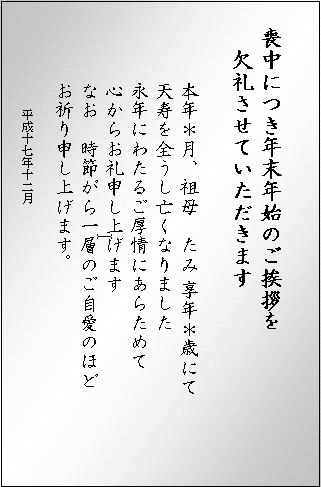 喪中につき年末年始のご挨拶を
欠礼させていただきます
本年＊月、祖母　たみ 享年＊歳にて
天寿を全うし亡くなりました
永年にわたるご厚情にあらためて
心からお礼申し上げます
なお　時節がら一層のご自愛のほど
お祈り申し上げます。
平成十七年十二月